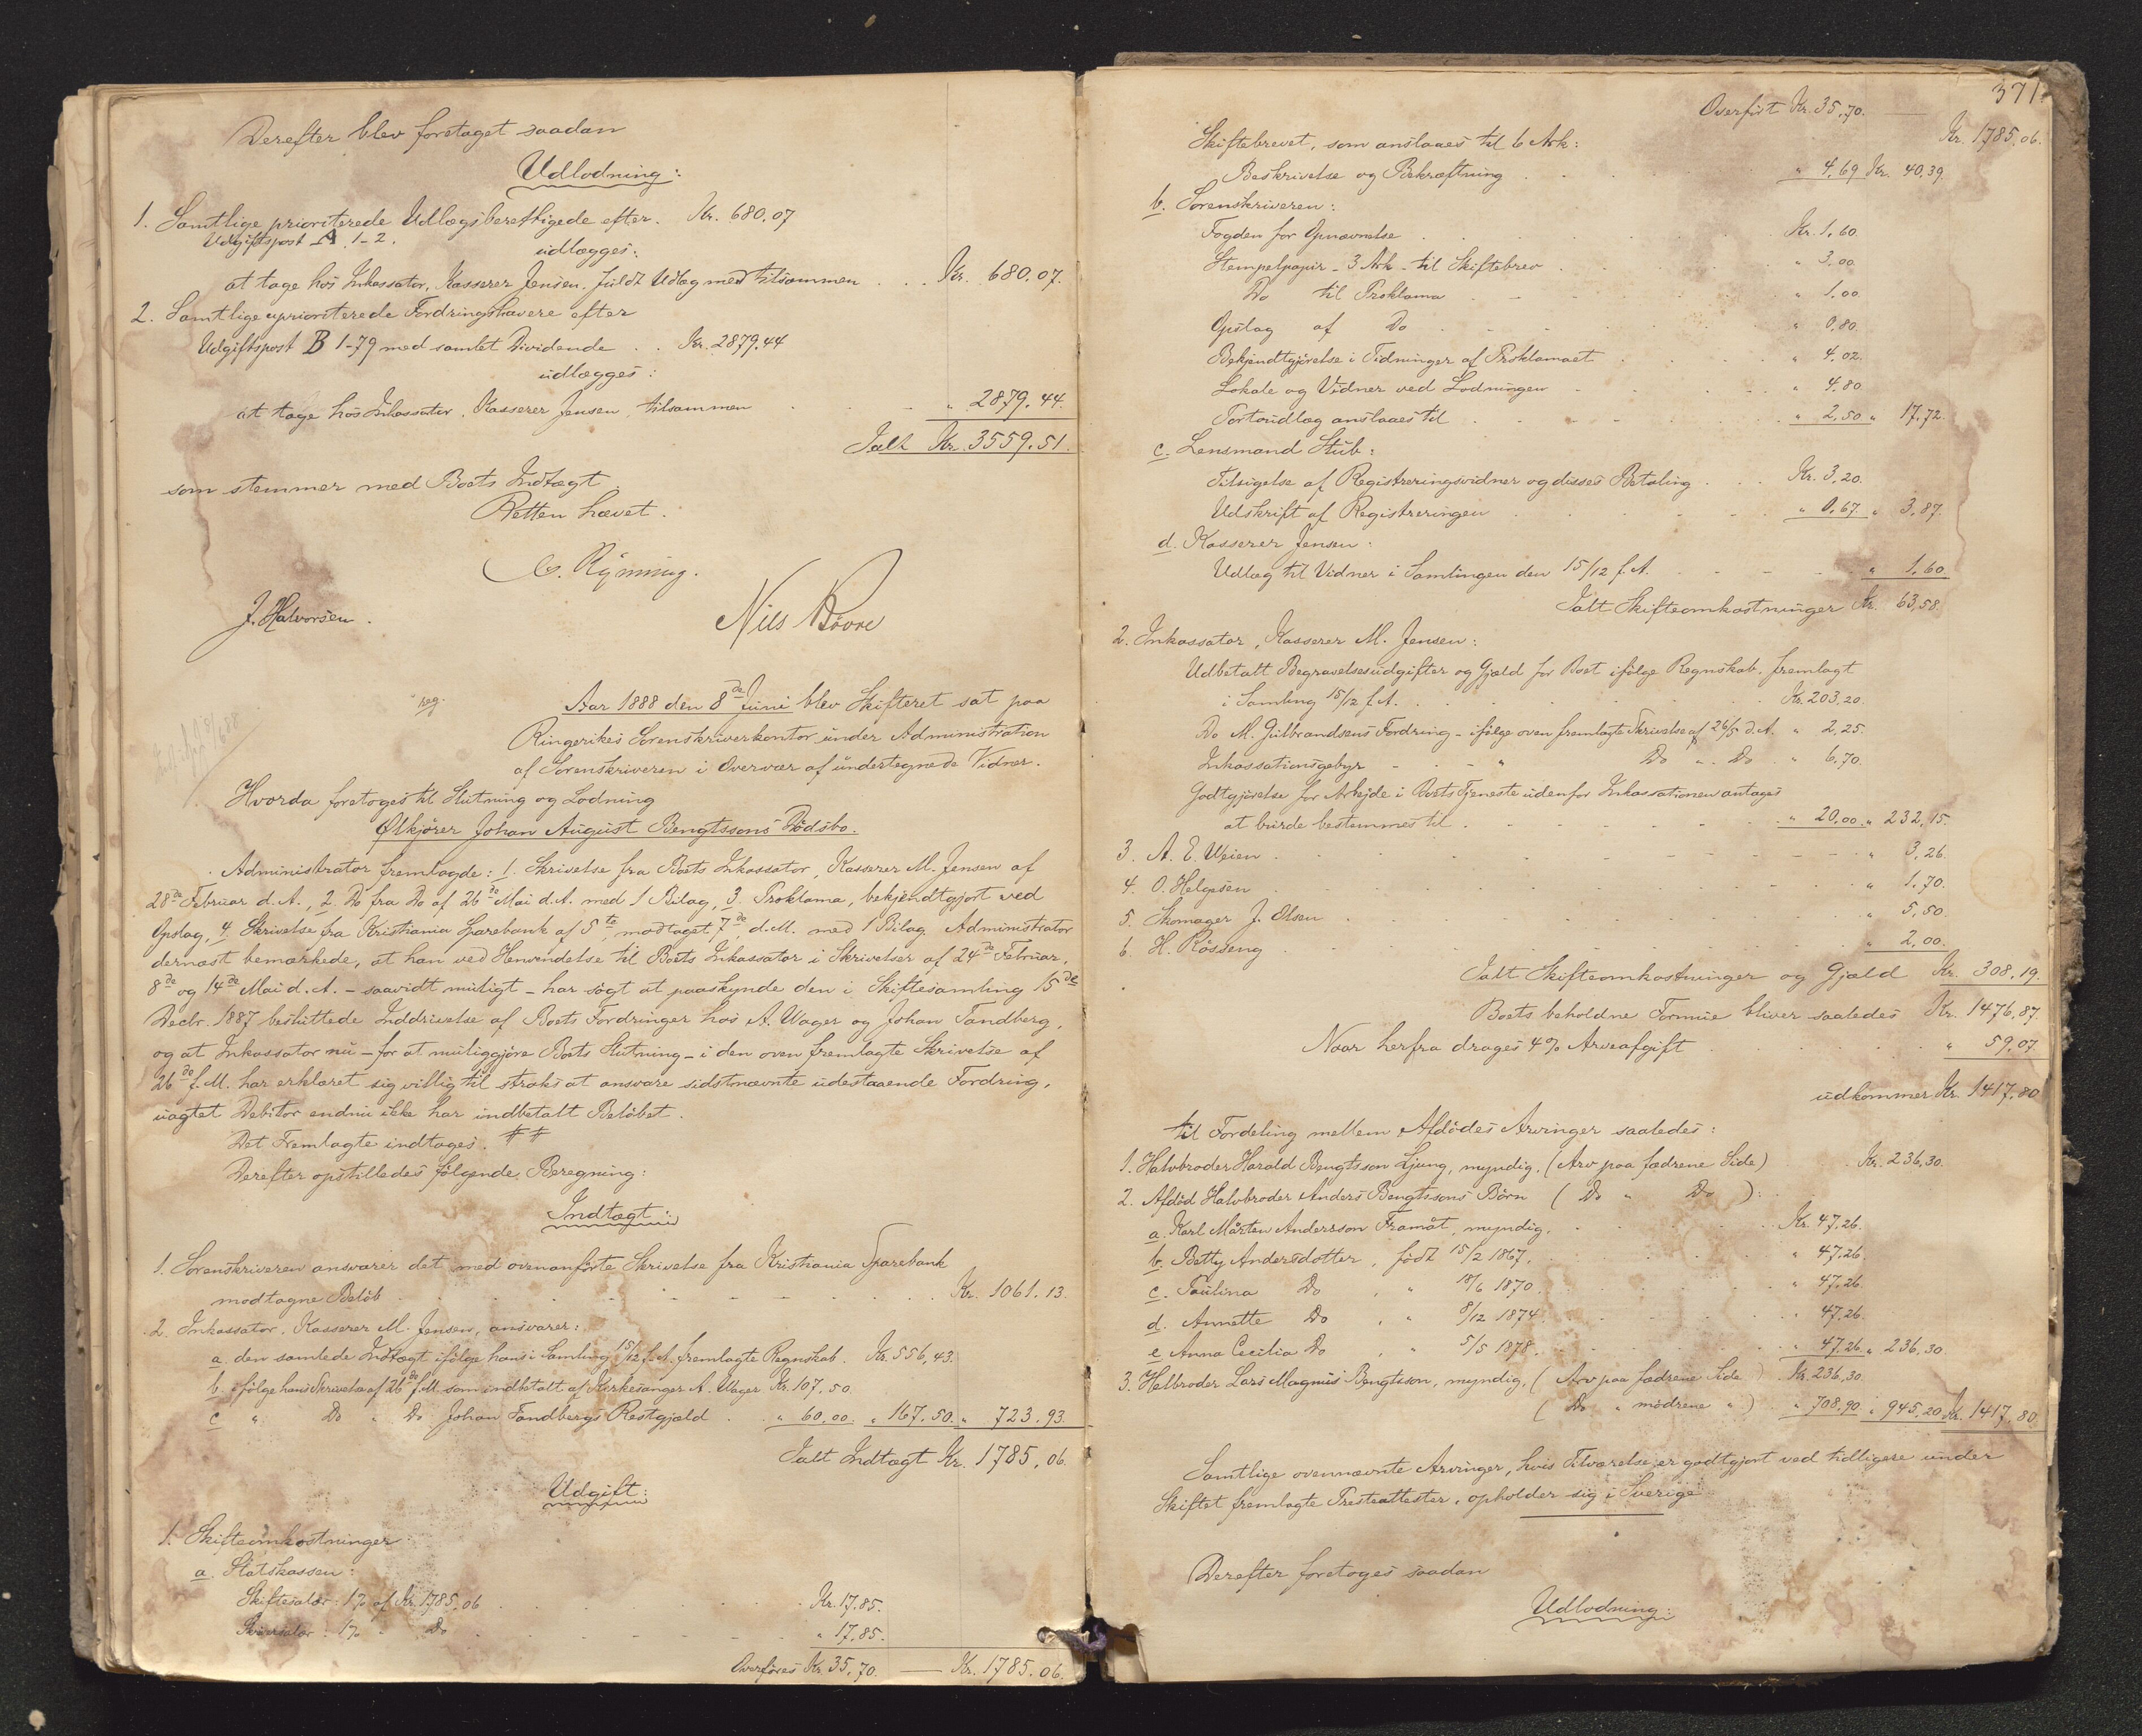 Derefter blev foretaget saadan
Udlodning:
1. Samtlige prioriterede Udlægsberettigede efter. Kr. 680.07
Udgiftspost A 1-2.
udlægges:
at tage hos Inkassator, Kasserer Jensen, fuldt Udlæg med tilsammen . . Kr. 680.07.
2. Samtlige uprioriterede Fordringshavere efter
Udgiftspost B 1-79 med samlet Dividende . . Kr. 2879.44
udlægges:
at tage hos Inkassator, Kasserer Jensen, tilsammen " 2879.44.
Ialt Kr. 3559.51.
som stemmer med Boets Indtægt.
Retten hævet.
C. Rynning.
J. Halvorsen. Nils Børre
Aar 1888 den 8de Juni blev Skifteret sat paa
Ringerikes Sorenskriverkontor under Administration
af Sorenskriveren i Overvær af undertegnede Vidner.
Hvorda foretoges til Slutning og Lodning
Ølkjører Johan August Bengtssons Dødsbo.
Administrator fremlagde: 1. Skrivelse fra Boets Inkassator, Kasserer M. Jensen af
28de Februar d. A., 2. Do fra Do af 26de Mai d. A. med 1 Bilag, 3. Proklama, bekjendtgjort ved
Opslag, 4 Skrivelse fra Kristiania Sparebank af 5te, modtaget 7de d. M. med 1 Bilag. Administrator
dernæst bemærkede, at han ved Henvendelse til Boets Inkassator i Skrivelser af 24de Februar,
8de og 14de Mai d. A. - saavidt muligt - har søgt at paaskynde den i Skiftesamling 15de
Decbr. 1887 besluttede Inddrivelse af Boets Fordringer hos A. Wager og Johan Tandberg,
og at Inkassator nu - for at muliggjøre Boets Slutning - i den oven fremlagte Skrivelse af
26de f. M. har erklæret sig villig til straks at ansvare sidstnævnte udestaaende Fordring,
uagtet Debitor endnu ikke har indbetalt Beløbet.
Det Fremlagte indtages. ##
Derefter opstilledes følgende Beregning:
Indtægt:
1. Sorenskriveren ansvarer det med ovenanførte Skrivelse fra Kristiania Sparebank
modtagne Beløb . . . Kr. 1061.13.
2. Inkassator, Kasserer M. Jensen, ansvarer:
a. den samlede Indtægt ifølge hans i Samling 15/12 f. A. fremlagte Regnskab. Kr. 556,43.
b. ifølge hans Skrivelse af 26de f. M. som indbetalt af Kirkesanger A. Wager Kr. 107,50.
c " Do " Do Johan Tandbergs Restgjæld . " 60,00. " 167.50. " 723.93.
Ialt Indtægt Kr. 1785,06.
Udgift:
1. Skifteomkostninger:
a. Statskassen:
Skiftesalær: 1% af Kr. 1785,06 . . . Kr. 17.85.
Skriversalær: 1% " Do . . . " 17,85.
Overføres Kr. 35,70. — Kr. 1785.06.
371.
Overført Kr. 35,70. — Kr. 1785.06.
Skiftebrevet, som anslaaes til 6 Ark:
Beskrivelse og Bekræftning . . . " 4,69 Kr. 40,39.
b. Sorenskriveren:
Fogden for Opnævnelse . . . Kr. 1,60.
Stempelpapir - 3 Ark - til Skiftebrev . . . " 3,00.
Do til Proklama . . . " 1,00.
Opslag af Do . . . " 0,80.
Bekjendtgjørelse i Tidninger af Proklamaet . . . " 4,02.
Lokale og Vidner ved Lodningen . . . " 4,80
Portoudlæg anslaaes til . . . " 2,50 " 17,72.
c. Lensmand Stub:
Tilsigelse af Registreringsvidner og disses Betaling . . . Kr. 3,20.
Udskrift af Registreringen . . . " 0,67. " 3,87.
d. Kasserer Jensen:
Udlæg til Vidner i Samlingen den 15/12 f. A. . . . " 1,60
Ialt Skifteomkostninger Kr. 63,58.
2. Inkassator, Kasserer M. Jensen:
Udbetalt Begravelsesudgifter og Gjæld for Boet ifølge Regnskab, fremlagt
i Samling 15/12 f. A. . . . Kr. 203,20.
Do M. Gulbrandsens Fordring - ifølge oven fremlagte Skrivelse af 26/5 d. A. " 2,25.
Inkassationsgebyr - " Do " Do " 6,70.
Godtgjørelse for Arbejde i Boets Tjeneste udenfor Inkassationen antages
at burde bestemmes til . . . " 20,00. " 232,15.
3. A. E. Weien . . . " 3,26.
4. O. Helgesen . . . " 1,70.
5. Skomager J. Olsen . . . " 5,50.
6. H. Røsseng . . . " 2,00.
Ialt Skifteomkostninger og Gjæld Kr. 308,19.
Boets beholdne Formue bliver saaledes Kr. 1476,87.
Naar herfra drages 4% Arveafgift . . . " 59,07
udkommer Kr. 1417,80
til Fordeling mellem Afdødes Arvinger saaledes:
1. Halvbroder Harald Bengtsson Ljung, myndig. (Arv paa fædrene Side) . Kr. 236,30.
2. Afdød Halvbroder Anders Bengtssons Børn ( Do " Do ):
a. Karl Mårten Andersson Framåt, myndig. . . . Kr. 47,26.
b. Betty Andersdotter, født 15/2 1867. . . . " 47,26.
c. Paulina Do , " 18/6 1870 . . . " 47,26
d. Annette Do , " 8/12 1874 . . . " 47,26.
e. Anna Cecilia Do , " 5/5 1878. . . . " 47,26 " 236,30.
3. Helbroder Lars Magnus Bengtsson, myndig, ( Arv paa fædrene Side ) Kr. 236,30
( Do " mødrene " ) " 708,90. " 945,20 Kr. 1417,80.
Samtlige ovennævnte Arvinger, hvis Tilværelse er godtgjort ved tidligere under
Skiftet fremlagte Presteattester, opholder sig i Sverige
Derefter foretoges saadan
Udlodning: